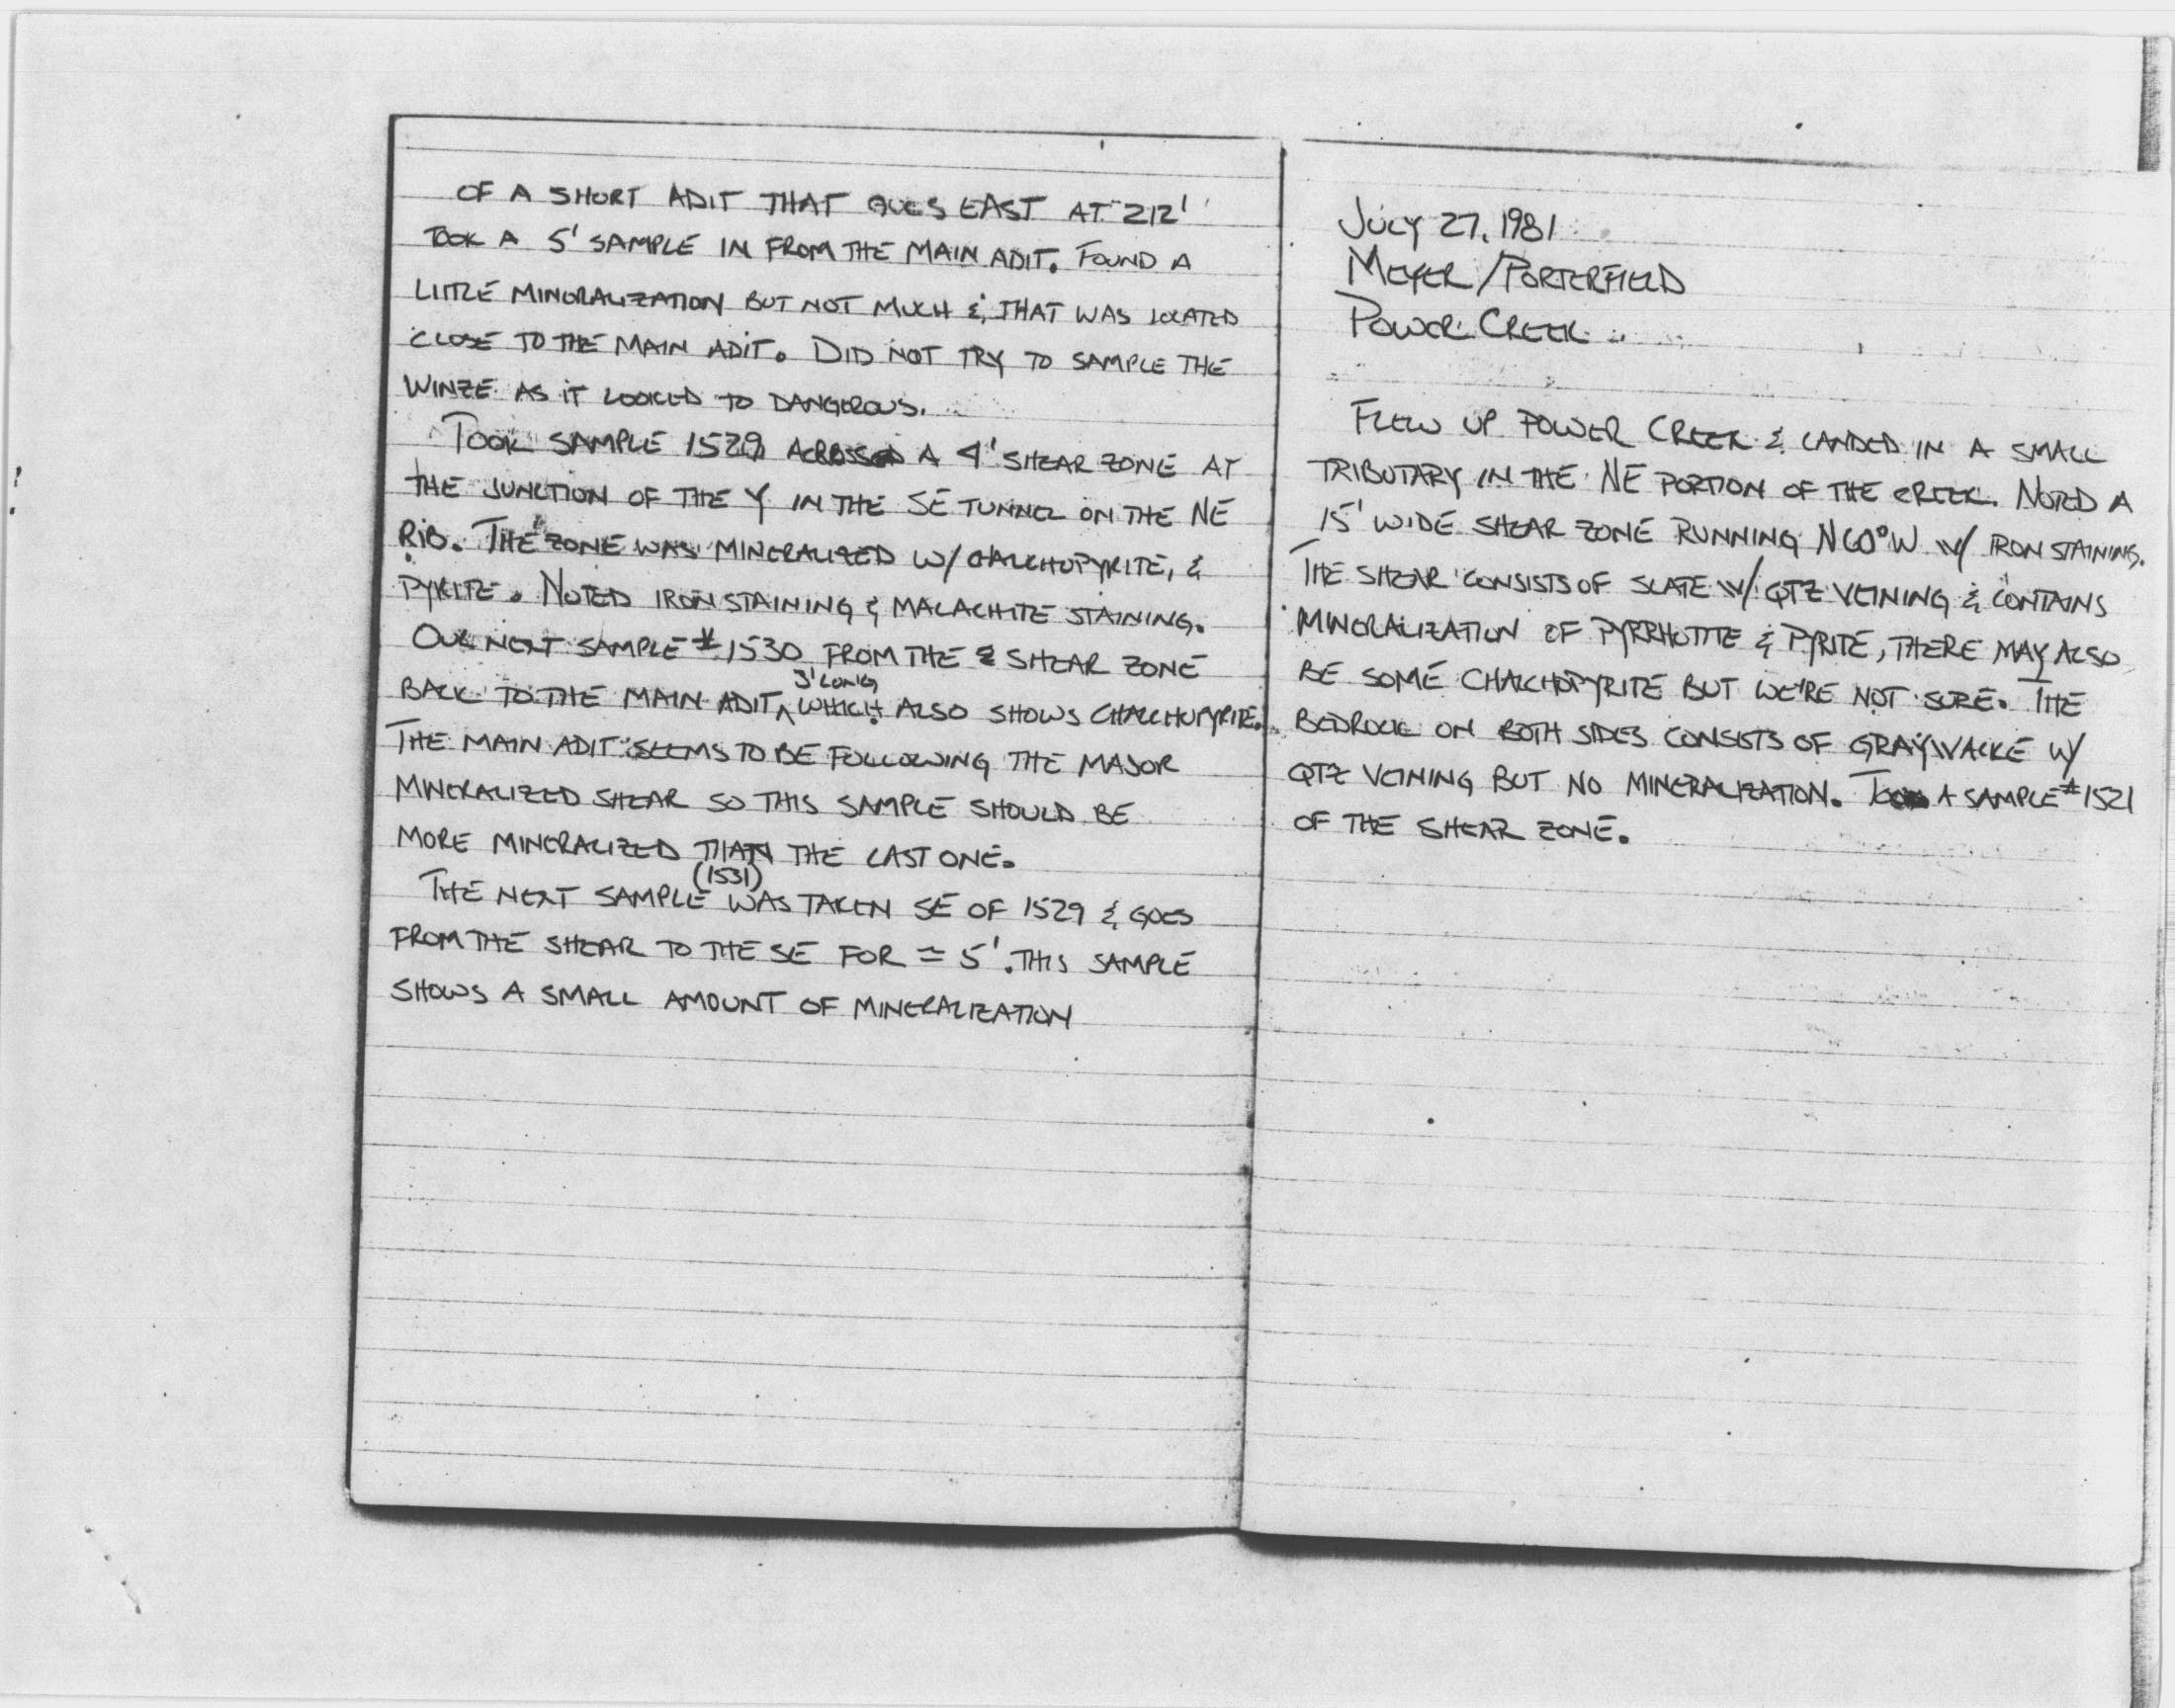 OF A SHORT ADIT THAT GOES EAST AT 212'
TOOK A 5' SAMPLE IN FROM THE MAIN ADIT. FOUND A
LITTLE MINERALIZATION BUT NOT MUCH & THAT WAS LOCATED
CLOSE TO THE MAIN ADIT. DID NOT TRY TO SAMPLE THE
WINZE AS IT LOOKED TO DANGEROUS.
TOOK SAMPLE 1529 ACROSS A 4' SHEAR ZONE AT
THE JUNCTION OF THE Y IN THE SE TUNNEL ON THE NE
RIB. THE ZONE WAS MINERALIZED W/ CHALCHOPYRITE, &
PYRITE. NOTED IRON STAINING & MALACHITE STAINING.
OUR NEXT SAMPLE #1530 FROM THE SHEAR ZONE
BACK TO THE MAIN ADIT ^ 3' LONG WHICH ALSO SHOWS CHALCHOPYRITE.
THE MAIN ADIT SEEMS TO BE FOLLOWING THE MAJOR
MINERALIZED SHEAR SO THIS SAMPLE SHOULD BE
MORE MINERALIZED THAN THE LAST ONE.
THE NEXT SAMPLE (1531) WAS TAKEN SE OF 1529 & GOES
FROM THE SHEAR TO THE SE FOR ≃ 5'. THIS SAMPLE
SHOWS A SMALL AMOUNT OF MINERALIZATION
JULY 27, 1981
MEYER/PORTERFIELD
POWER CREEK
FLEW UP POWER CREEK & LANDED IN A SMALL
TRIBUTARY IN THE NE PORTION OF THE CREEK. NOTED A
15' WIDE SHEAR ZONE RUNNING N60°W W/ IRON STAINING.
THE SHEAR CONSISTS OF SLATE W/ QTZ VEINING & CONTAINS
MINERALIZATION OF PYRRHOTITE & PYRITE, THERE MAY ALSO
BE SOME CHALCHOPYRITE BUT WE'RE NOT SURE. THE
BEDROCK ON BOTH SIDES CONSISTS OF GRAYWACKE W/
QTZ VEINING BUT NO MINERALIZATION. TOOK A SAMPLE #1521
OF THE SHEAR ZONE.